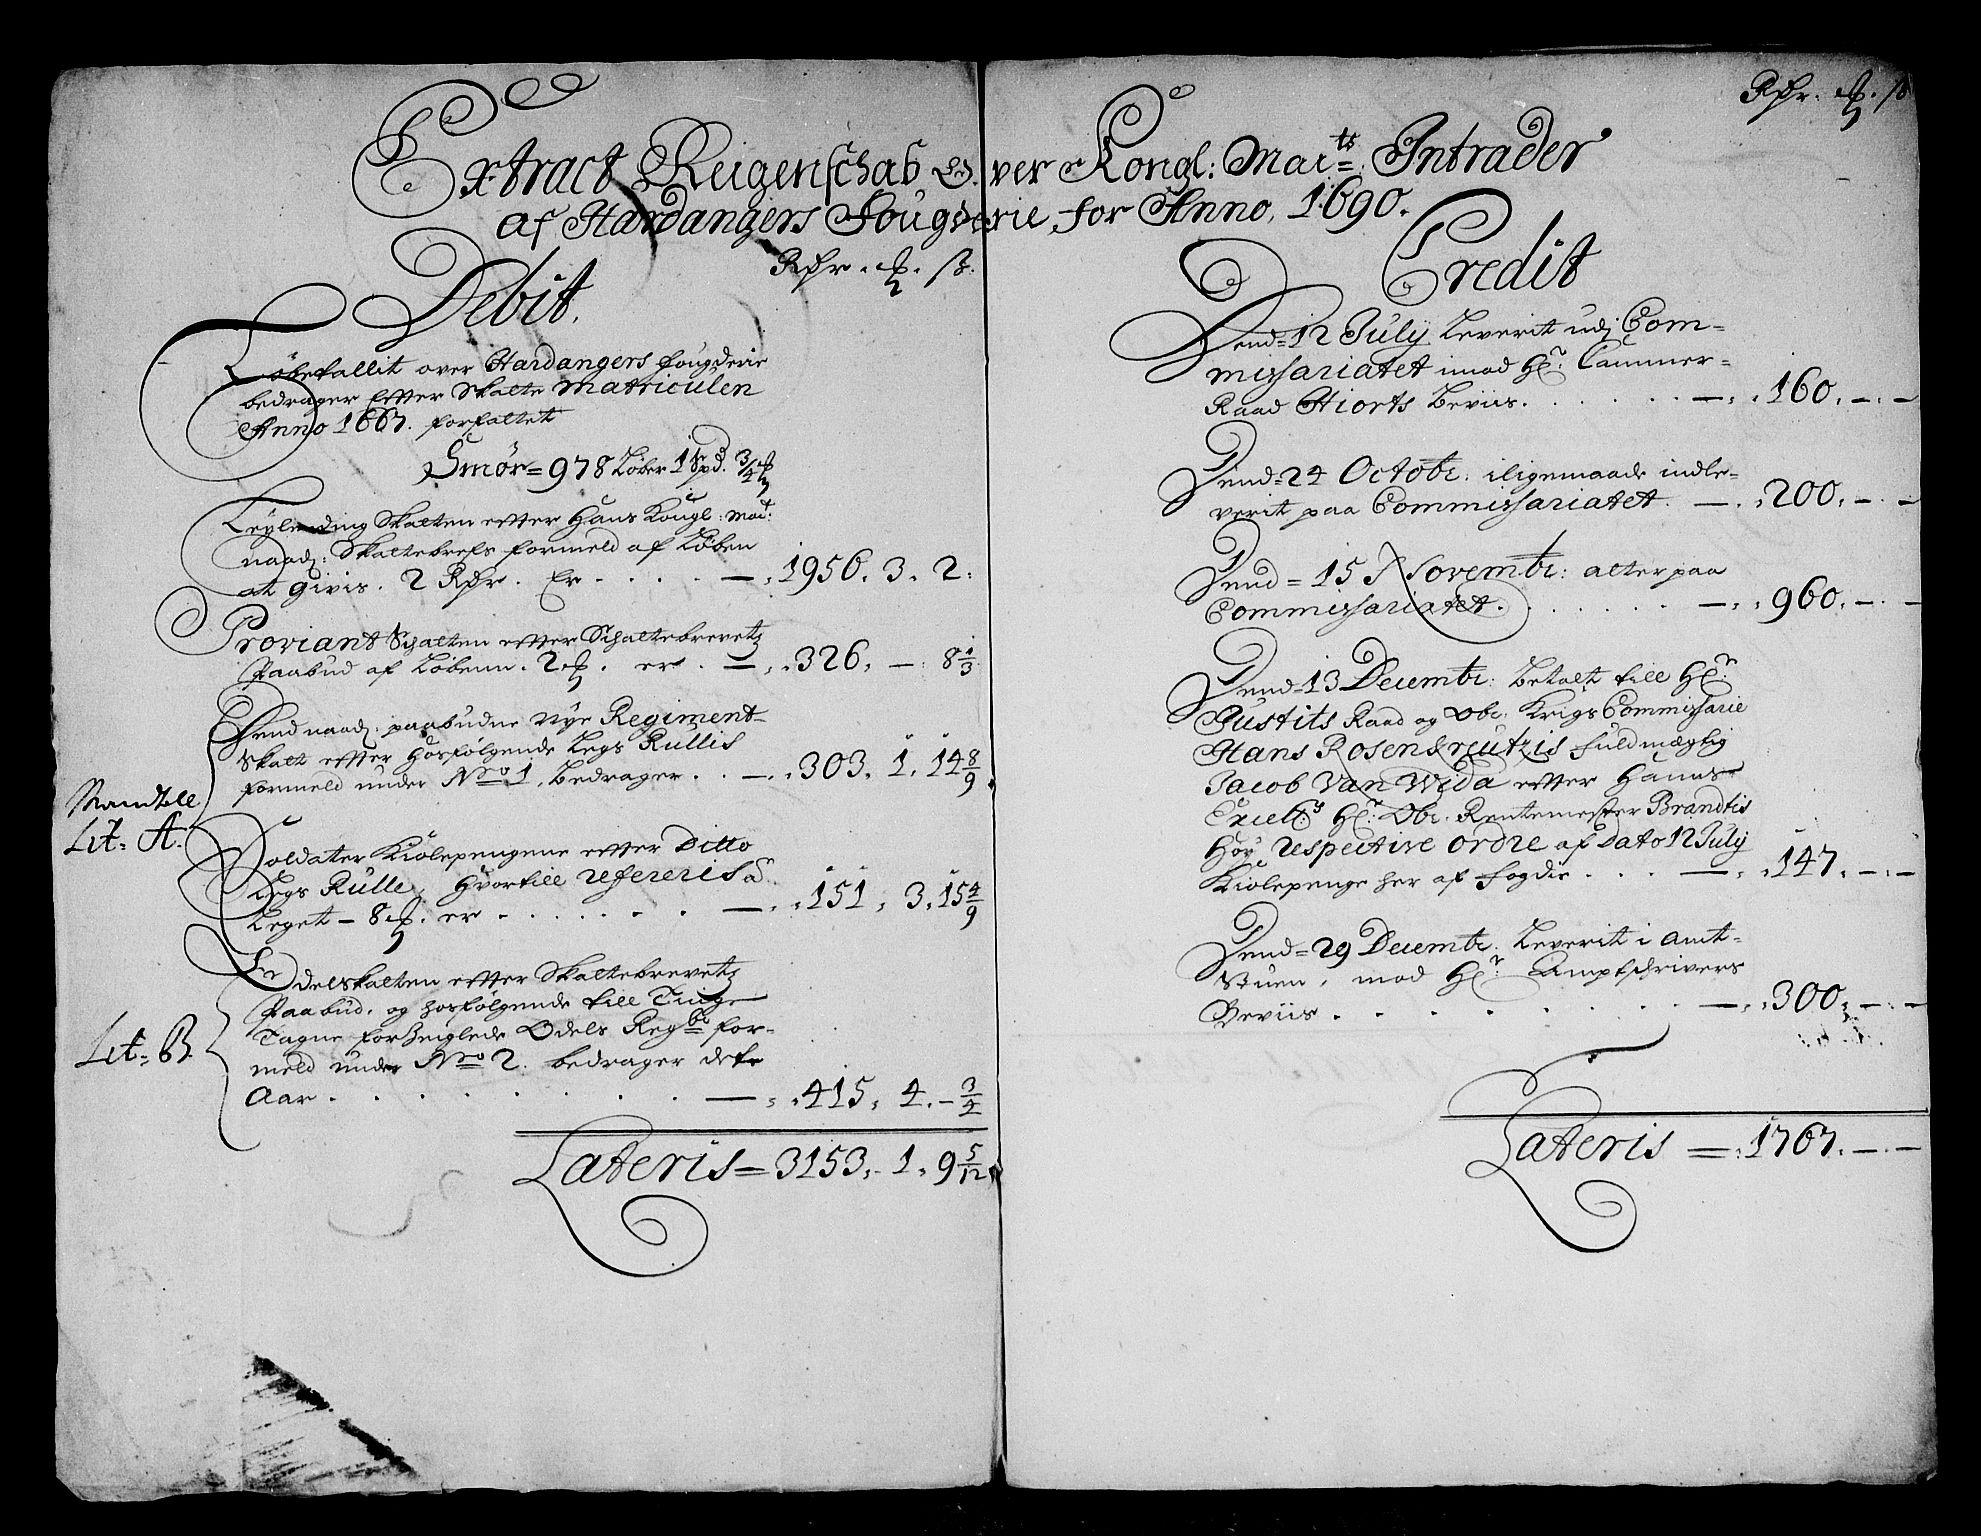 Extract Reigenschab Over Kongl: Maits: Intrader
af Hardangers Fougderie, for Anno, 1690.
Debit.
Rdr. ort. ß.
Løbetallit over Hardangers fougderie
bedrager efter Skatte Matriculen
Anno 1667. forfattet
Smør = 978 Løber 1 Spd. 3/4
Leylending Skatten efter Hans Kongl: Mad:
naad: Skattebrefs formeld af Løben
at givis. 2 Rdr. Er . . . . — 1956. 3. 2.
Proviant Schatten efter Schattebrevetz
Paabud af Løbenn. 2 ort. er . — 326. — 8 1/3
Hend naad: paabudne Nye Regiment-
skatt efter hosfølgende Legs Rullis
formeld under No 1. Bedrager . . — 303. 1. 14 8/9
Mandtall
Lit. A.
Soldater Kiolepengene efter Ditto
Legs Rulle, hvortill refereris à
Leget — 8 ort. er . . . . . — 151. 3. 15 4/9
Odelskatten efter Skattebrevetz
Paabud, og hosfølgende till Tinge
Tagne forseiglede Odels Regbr for-
meld under No 2. bedrager dette
Aar . . . . . . . . — 415. 4. — 3/4
Lit. B.
Lateris = 3153. 1. 9 5/12
Rdr. ort. ß
Credit
Dend 12 July Leverit udj Com-
missariatet imod Hr. Cammer-
Raad Hiorts Beviis. . . . . . — 160. — —
Dend 24 Octobr: iligemaade indle-
verit paa Commissariatet. — 200. — —
Dend = 15 Novembr: atter paa
Commissariatet. . . . . . . — 960. — —
Dend 13 Decembr: betalt till Hr.
Justits Raad og Obr. Krigs Commissarie
Hans Rosenkreutzis fuldmægtig
Jacob Van Wida efter Hanns
Excells Hr. Obr. Rentemester Brandtis
Høy respective ordre af Dato 12 July
Kiolepenge her af fogdie . . . — 147. — —
Dend = 29 Decembr. Leverit i Amt-
stuen, mod Hr. Amptschrivers
Beviis . . . . . . . — 300. — —
Lateris = 1767. — —